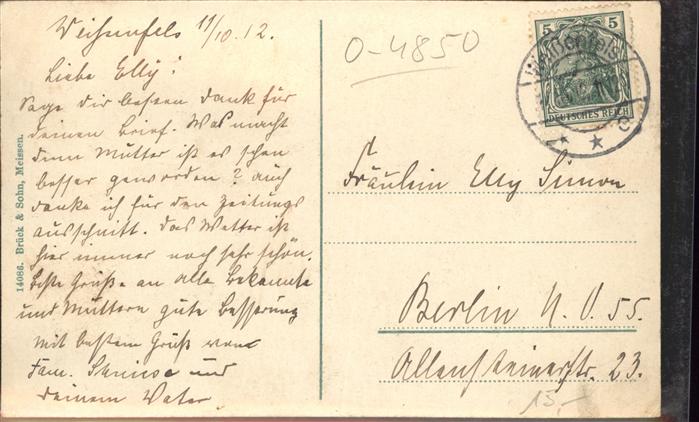 Weißenfels 11/10.12.
Liebe Elly!
Sage dir besten Dank für
deinen Brief. Was macht
denn Mutter ist es schon
besser geworden? auch
danke ich für den Zeitungs
ausschnitt. Das Wetter ist
hier immer noch sehr schön.
Beste Grüße an alle Bekannte
und Muttern gute Besserung
Mit bestem Gruß von
Fam. und
deinem Vater
14086. Brück & Sohn, Meissen.
0-4850
5 5
DEUTSCHES REICH
Weißenfels
Fräulein Elly Simon
Berlin N.O. 55.
Allensteinerstr. 23.
15.-